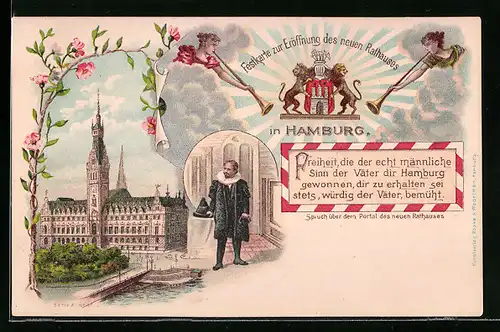 Festkarte zur Eröffnung des neuen Rathauses
in HAMBURG.
Freiheit, die der echt männliche
Sinn der Väter dir Hamburg
gewonnen, dir zu erhalten sei
stets, würdig der Väter, bemüht.
Spruch über dem Portal des neuen Rathauses